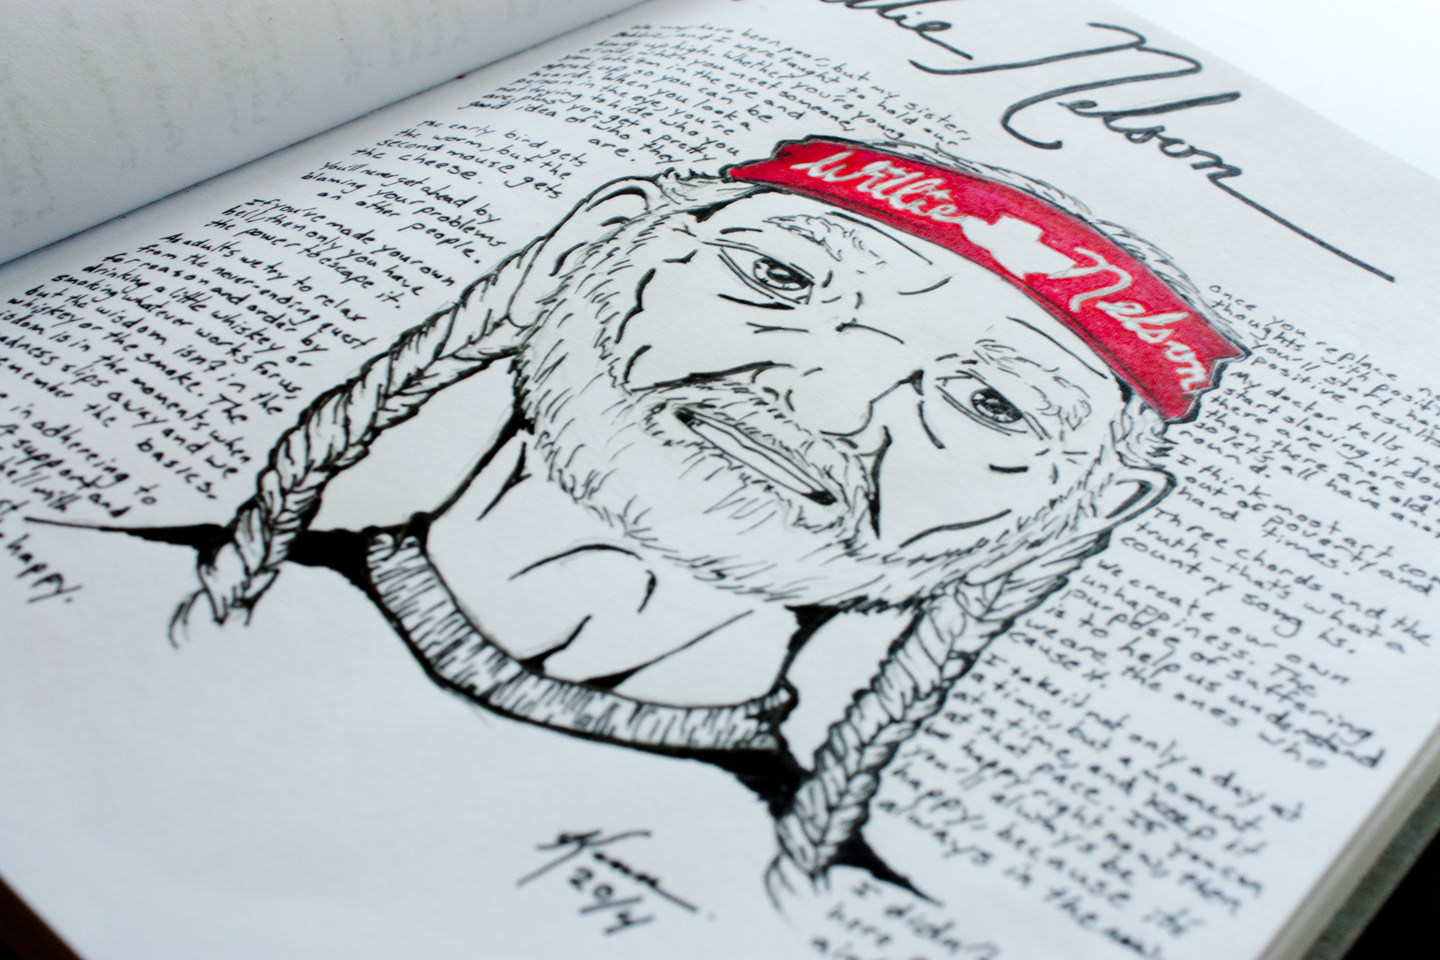 llie Nelson
We may have been poor, but my sister,
Bobbie, and I were taught to hold our
heads up high. Whether you're young
or old, when you meet someone,
you look 'em in the eye and
speak up so you can be
heard. When you look a
person in the eye, you're
not trying to hide who you
are, plus you get a pretty
good idea of who they
are.
The early bird gets
the worm, but the
second mouse gets
the cheese.
You'll never get ahead by
blaming your problems
on other people.
If you've made your own
hell, then only you have
the power to escape it.
As adults we try to relax
from the never-ending quest
for reason and order by
drinking a little whiskey or
smoking whatever works for us,
but the wisdom isn't in the
whiskey or the smoke. The
wisdom is in the moments when
madness slips away and we
remember the basics.
in adhering to
supportand
will
happy.
Willie Nelson
once you replace
thoughts with positive
you'll start having
positive results.
My doctor tells me
start slowing it down
there are more old
than there are old
doctors, so
I think most
out of poverty and
hard times.
Three chords and the
truth - that's what a
country song is.
we create our own
unhappiness. The
purpose of suffering
is to help us understand
we are the ones who
cause it.
I take it not only a day at
a time, but a moment
at a time, and keep it
at that pace. If you can
be happy right now, then
you'll always be
happy, because it's
always in the now.
I didn't
here
2014